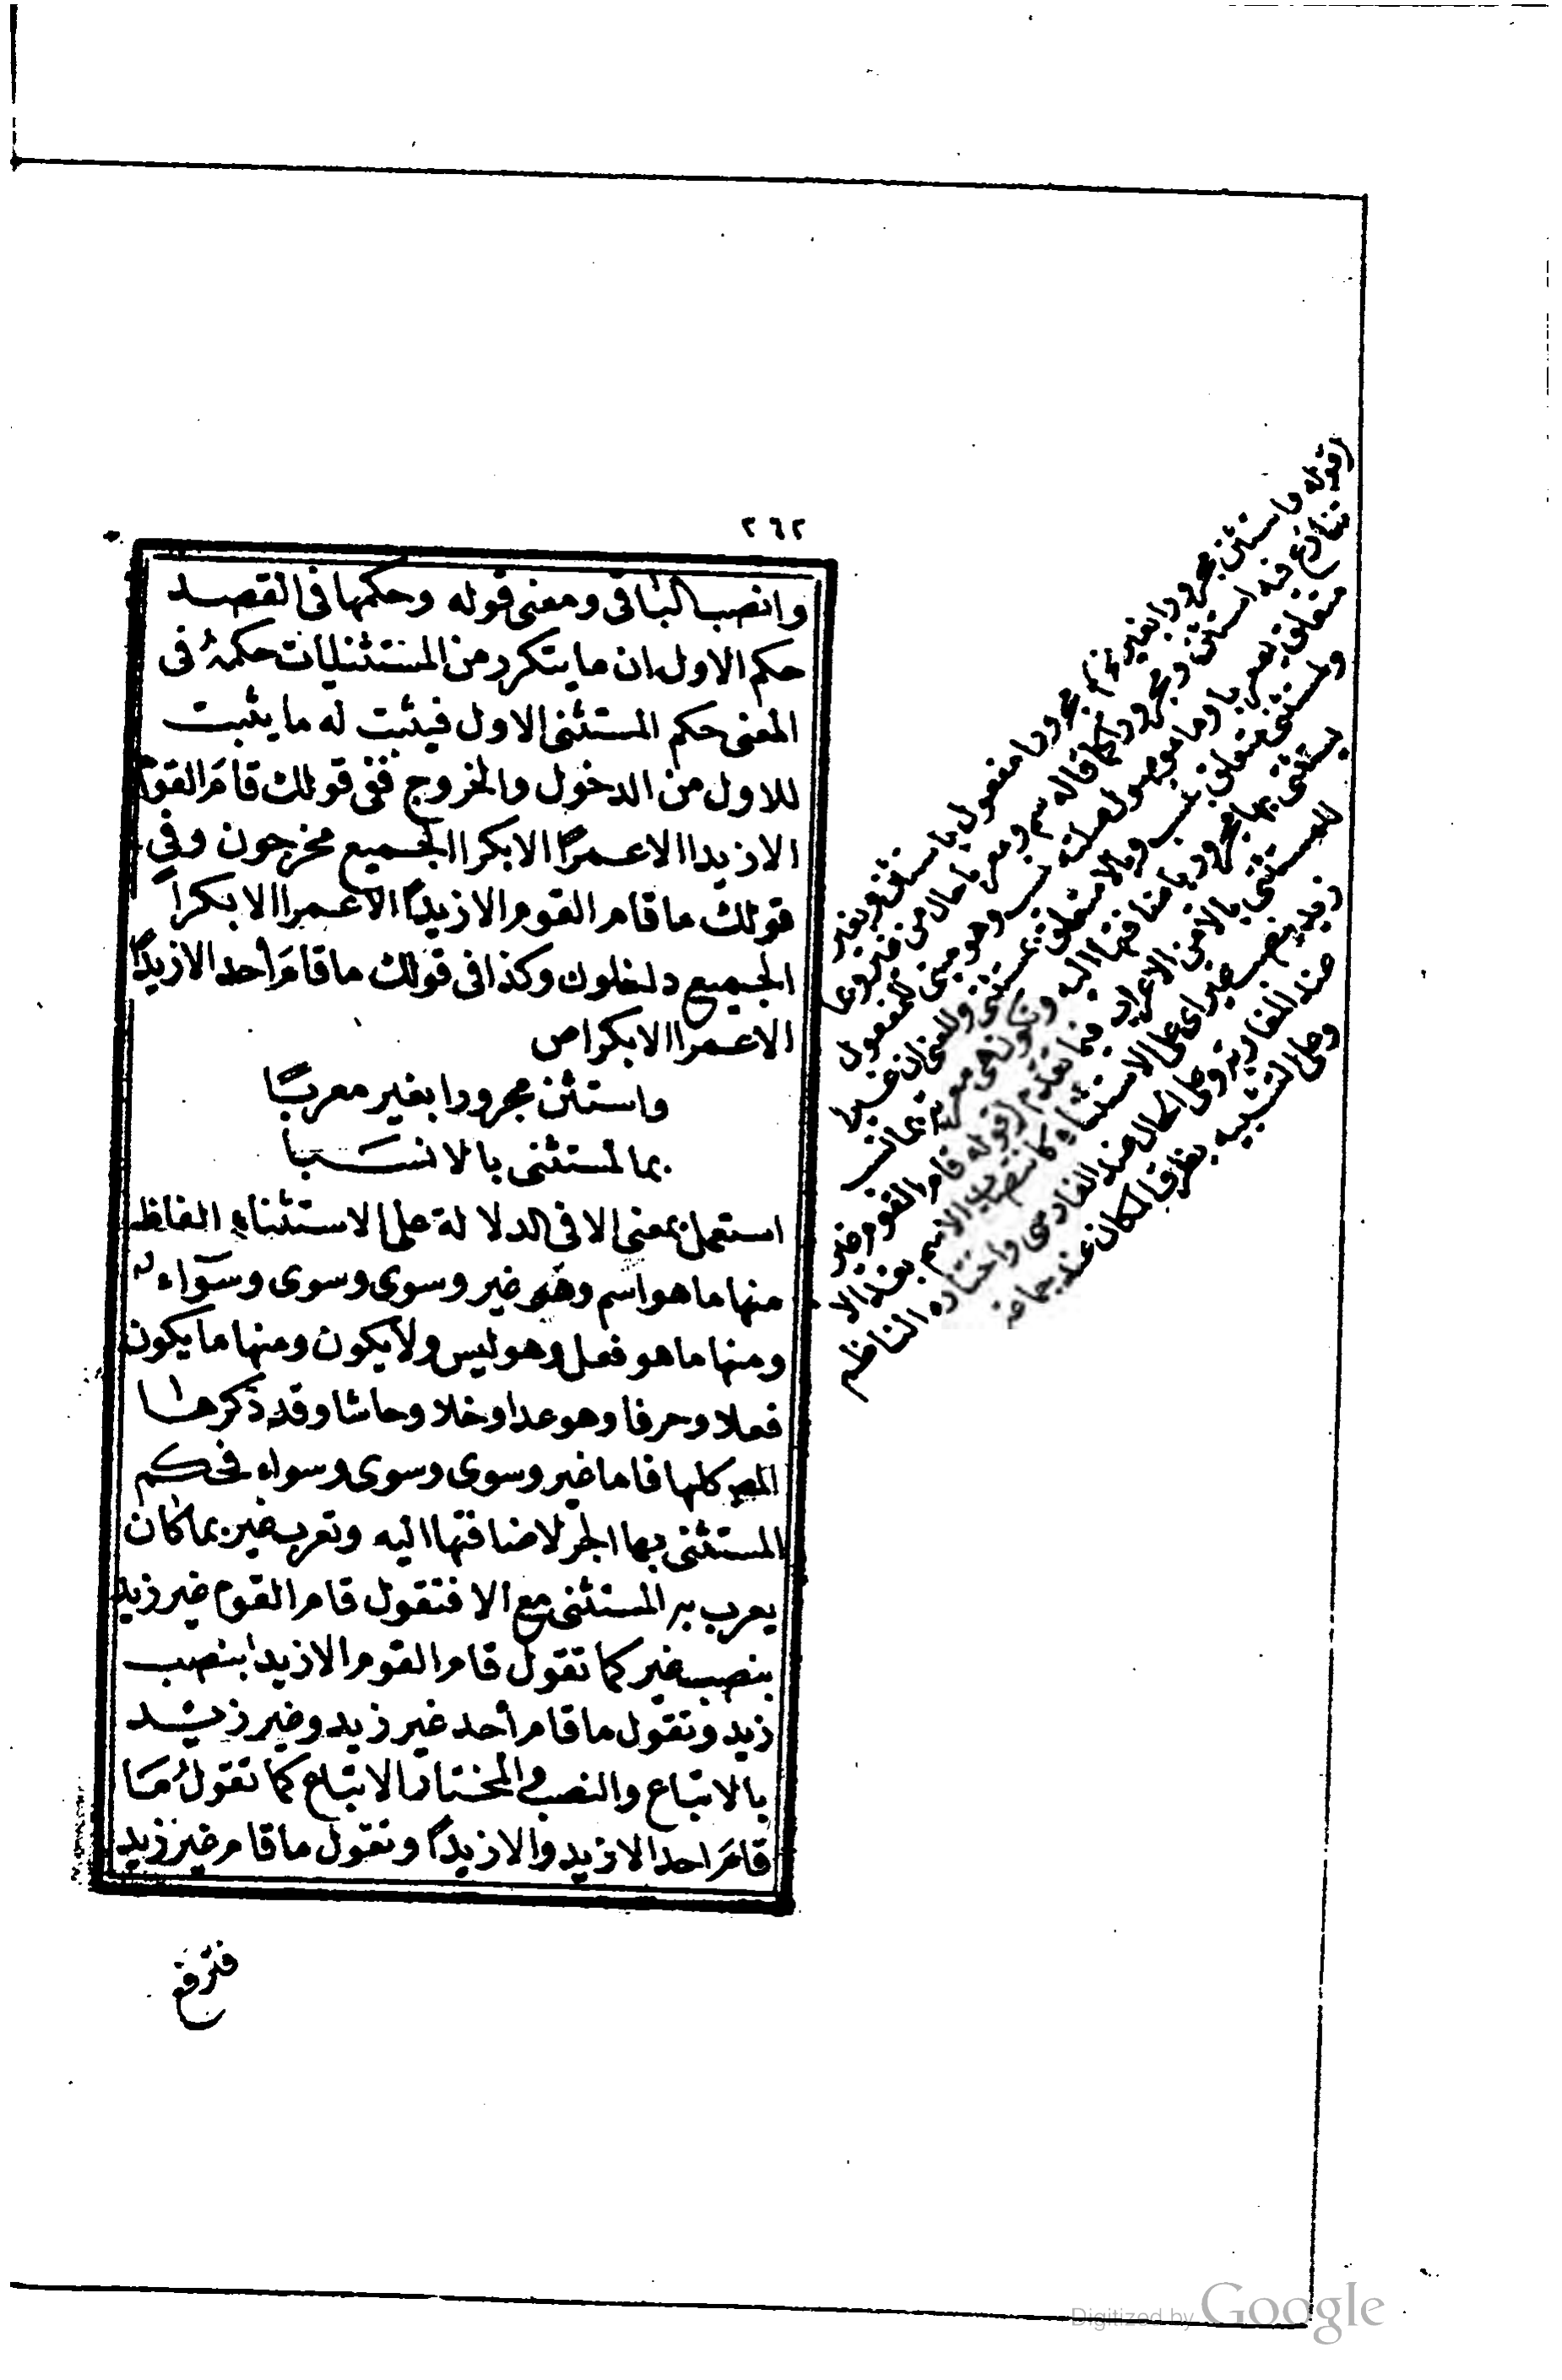 ٢٦٢
وانصب الباقى ومعنى قوله وحكمها فى القصد
حكم الاول ان ما يتكرر من المستثنيات حكمهُ فى
المعنى حكم المستثنى الاول فيثبت له ما يثبت
للاول من الدخول والخروج ففى قولك قامَ القومُ
الازيدا الاعمرًا الابكرا الجميع مخرجون وفى
قولك ما قام القوم الازيدًا الاعمرا الابكراً
الجميع داخلون وكذا فى قولك ما قامَ أحد الازيدًا
الاعمرا الابكرا ص
واستثن مجرورا بغير معربًا
بما لمستثنى بالا نسَبا
استعمل بمعنى الا فى الدلالة على الاستثناء الفاظ
منها ما هو اسم وهو غير وسوى وسوى وسوآء
ومنها ما هو فعل وهو ليس ولا يكون ومنها ما يكون
فعلا وحرفا وهو عدا وخلا وحاشا وقد ذكرها
المص كلها فاما غير وسوى وسوى وسواء فحكم
المستثنى بها الجر لاضافتها اليه وتعرب غير بما كان
يعرب به المستثنى مع الا فتقول قام القوم غير زيد
بنصب غير كما تقول قام القوم الازيدا بنصب
زيد وتقول ما قام أحد غير زيد وغير زيد
بالاتباع والنصب والمختار الاتباع كما تقولُ مَا
قامَ احد الازيد والازيدًا وتقول ما قام غير زيد
فترفع
(قوله واستثن مجرورا بغير الخ) مجرورا مفعول باستثن وبغير
تنازع فيه استثن ومجرورا كما قاله سم ومعربا حال من غير وبما
متعلق بمعربا وما موصول صلته نسب وهو مبنى للمفعول
ولمستثنى متعلق بنسب وبالا متعلق بمستثنى والمعنى ان غيرا
يستثنى بها مجرور باضافتها اليه وتكون هى معربة بما نسب
للمستثنى بالا من الاعراب فيما تقدم (قوله قام القوم غير
زيد بنصب غير اى على الاستثناء كانتصاب الاسم بعد الا
عند المغاربة وعلى الحال عند الفارسى واختاره الناظم
وعلى التشبيه بظرف المكان عند جماعة
Digitized by Google